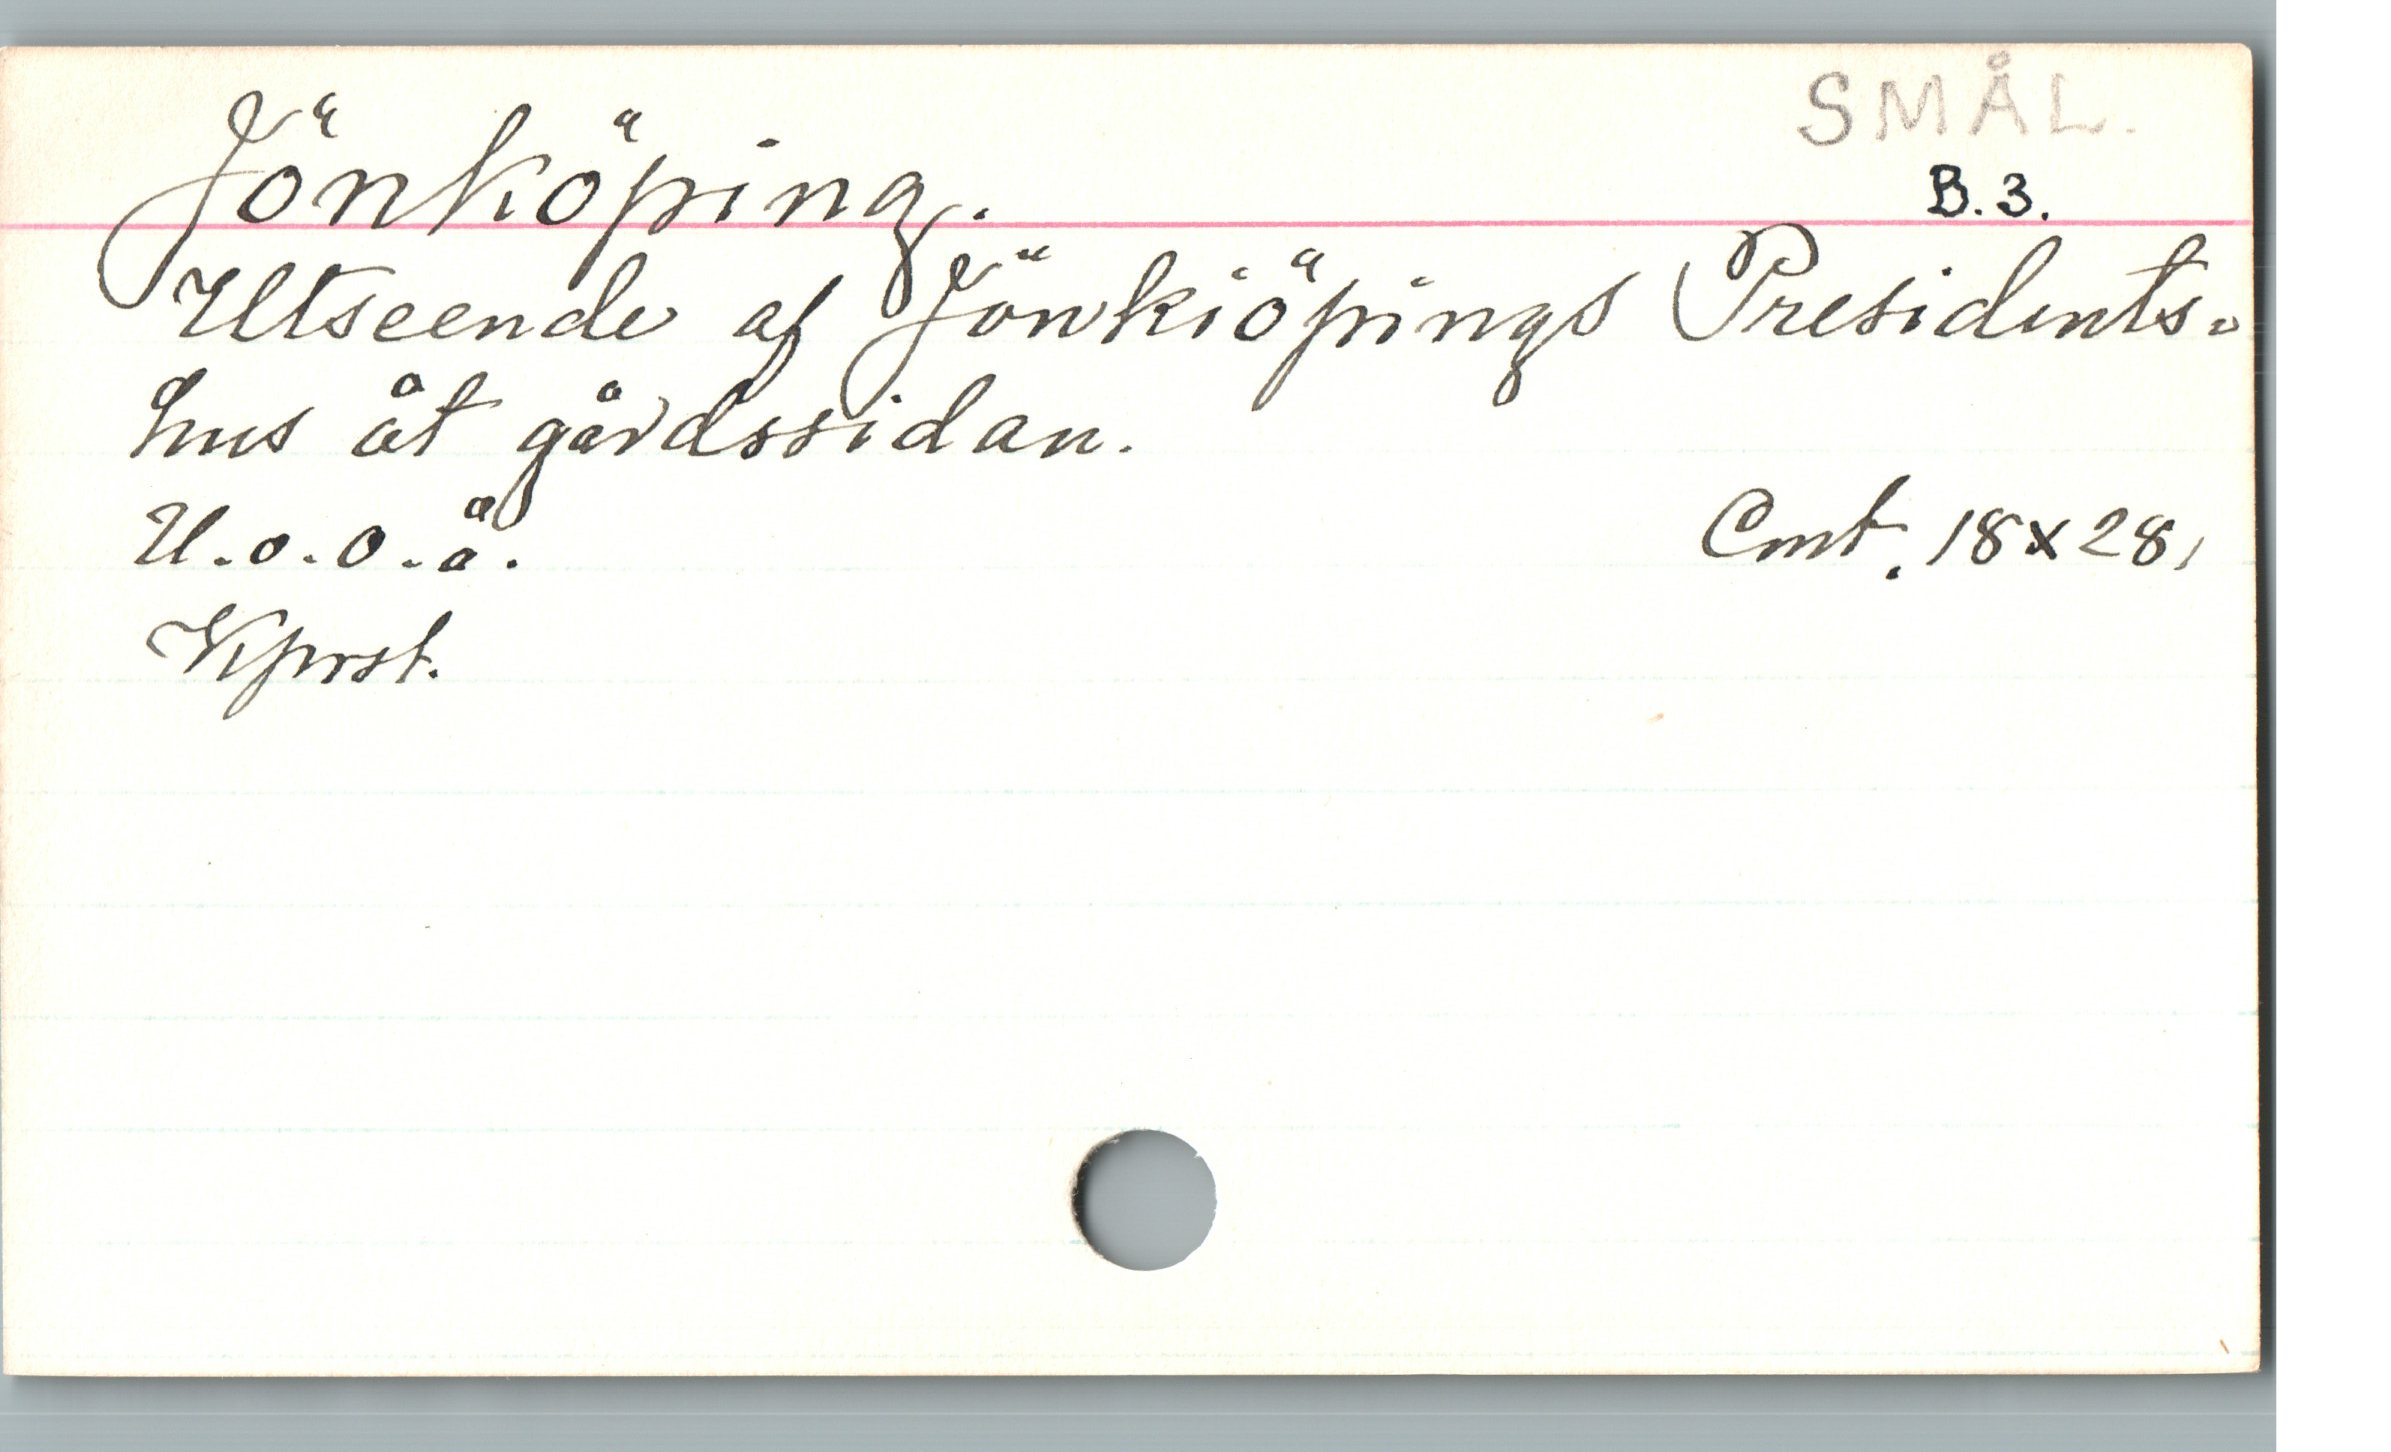 SMÅL.
Jönköping.
B.3.
Utseende af Jönkiöpings Presidents-
hus åt gårdssidan.
U.o.o.å.
Cmt. 18x28,
Kprst.